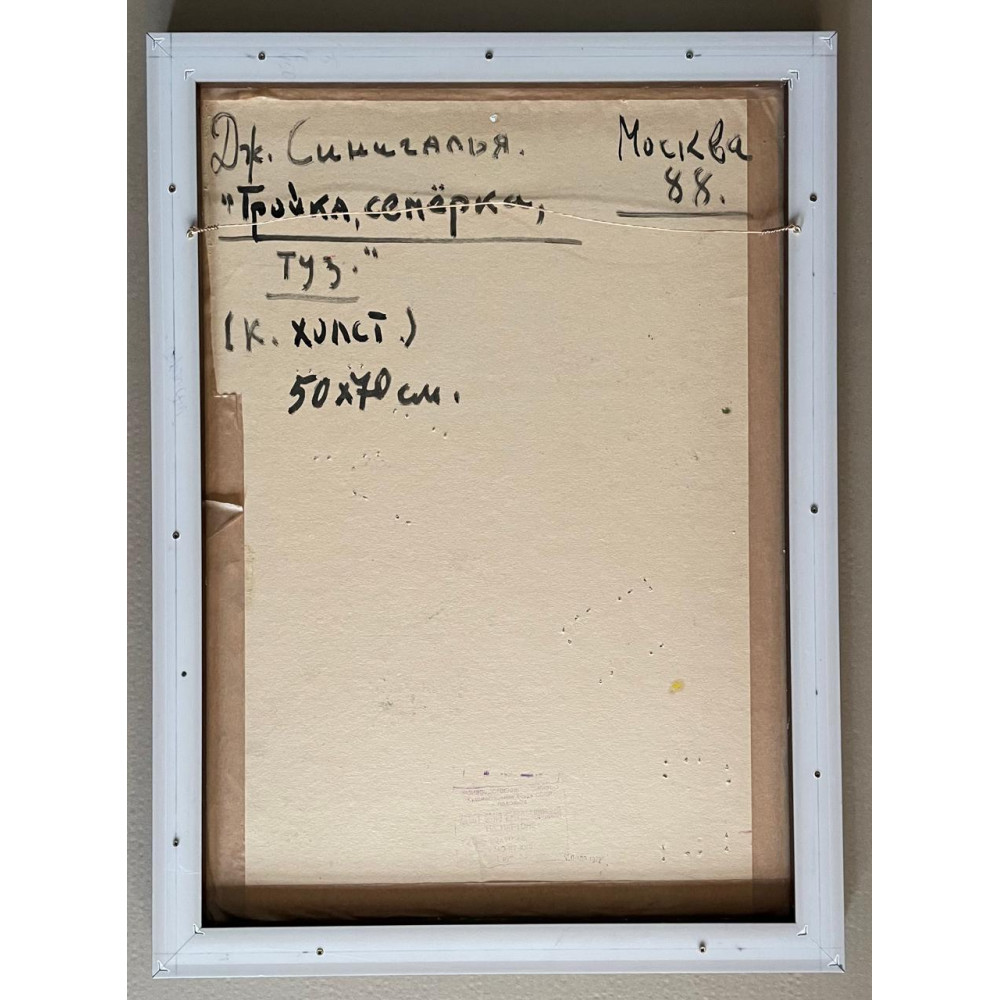 Дж. Синигалья.
Москва
88.
"Тройка, семёрка,
туз."
(к. холст.)
50х70 см.